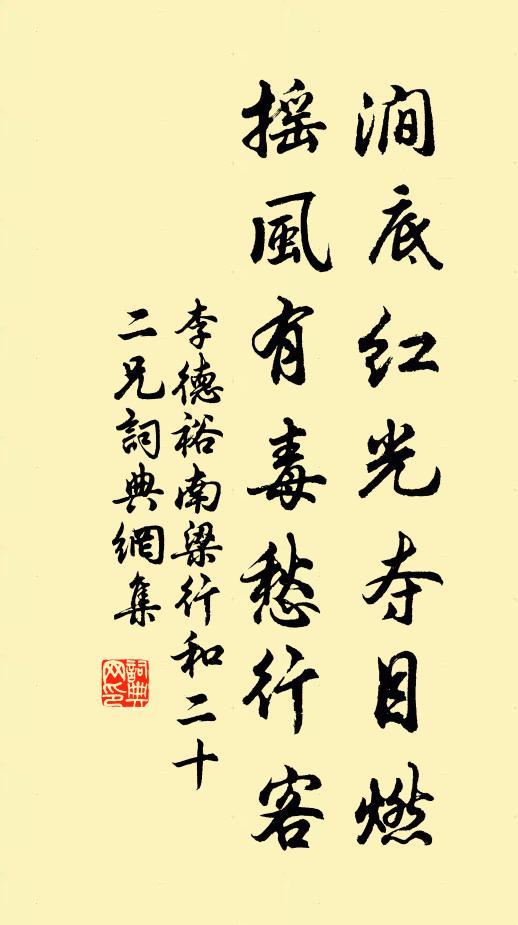 涧底红光夺目燃
摇風有毒愁行客
李德裕南梁行和二十
二兄詞典網集
詞典网印